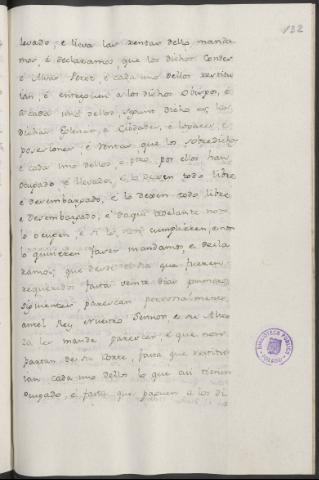 132
levado, e lieva las rentas dello manda
mos, é declaramos, que los dichos Condes
é Alvar Perez, é cada uno dellos restitu
ian, é entreguen a los dichos Obispos, é
a cada uno dellos, segunt dicho es, los
dichas Eglesias, é Cibdades, é logares, é
posesiones, é rentas que lo sobredicho
é cada uno dellos, o otro por ellos han
ocupado, é llevado, é lo dexen todo libre
e desembargado, é lo dexen todo libre
e desembargado, é daqui adelante non
lo ocupen, é si lo non cumplieren, o non
lo quisieren facer mandamos, e decla
ramos, que desde el dia que fueren
requeridos fasta veinte dias primeros
siguientes parescan personalmente
antel Rey Nuestro Sennor, e su Alte
za les mande parescer, é que non
partan de su Corte, fasta que restitu
ian cada uno dello lo que asi tienen
ocupado, é fasta que paguen a los di
BIBLIOTECA PUBLICA
TOLEDO